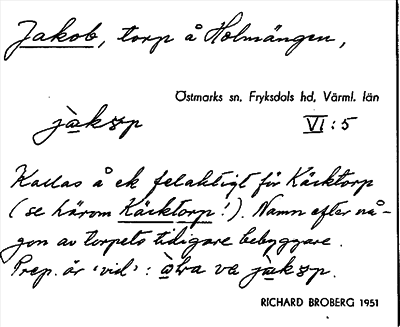 Jakob, torp å Holmängen,
Östmarks sn, Fryksdals hd, Värml. län
jàkɔp VI:5
Kallas å ek felaktigt för Käcktorp
(se härom Käcktorp!). Namn efter nå-
gon av torpets tidigare bebyggare.
Prep. är 'vid': va jàkɔp.
RICHARD BROBERG 1951